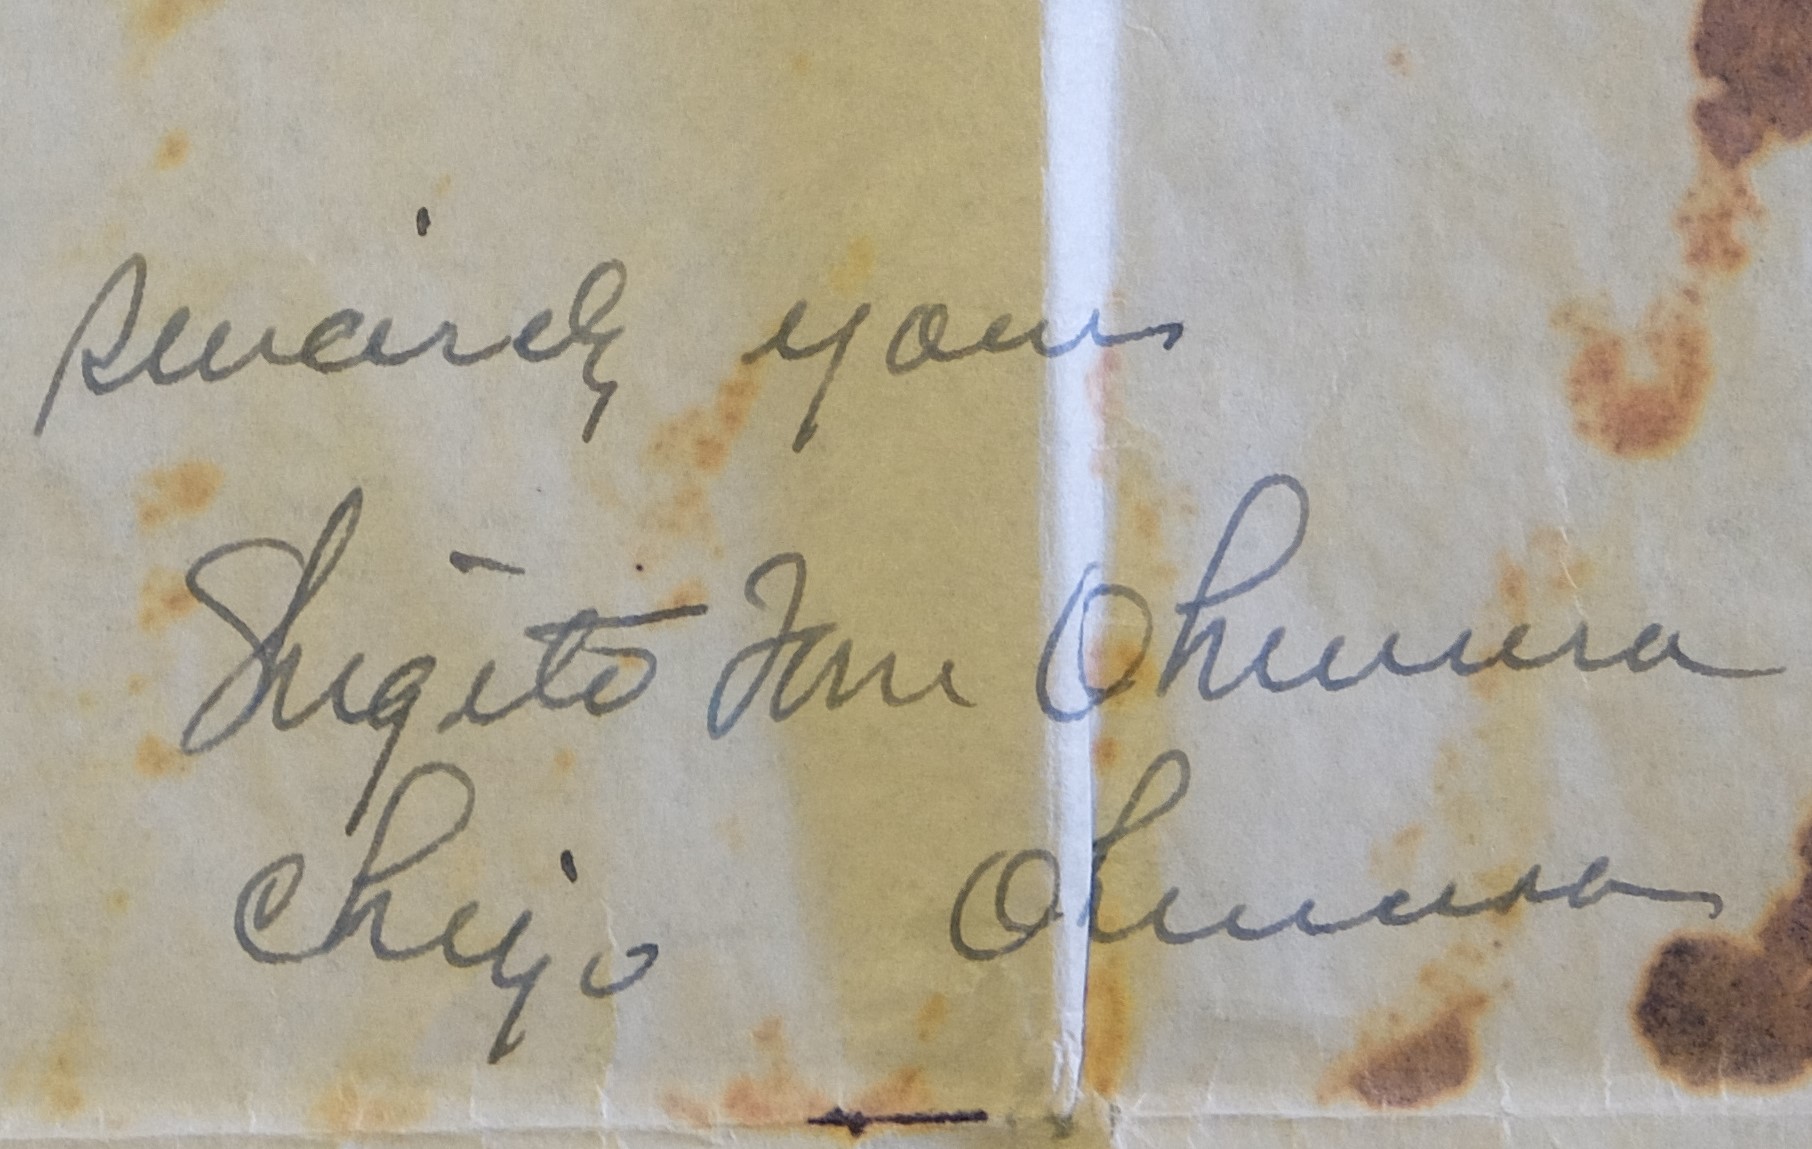 sincerely yours
Shigeto Tom Ohmura
Chiyo Ohmura